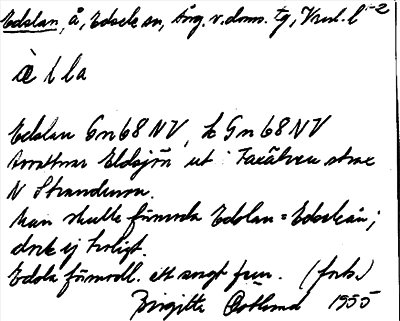 Edslan, å, Edsele sn, Ång. v. doms. tg, Vnl. l⁻²
è l la
Edslan Gn68NV, t Gn68NV
avvattnar Eldsjön ut i Faxälven strax
N Strandnorn.
Man skulle förmoda Edslan = Edseleån;
dock ej troligt.
Edsla förmodl. ett svagt fem. (forts.)
Birgitta Östlund 1955